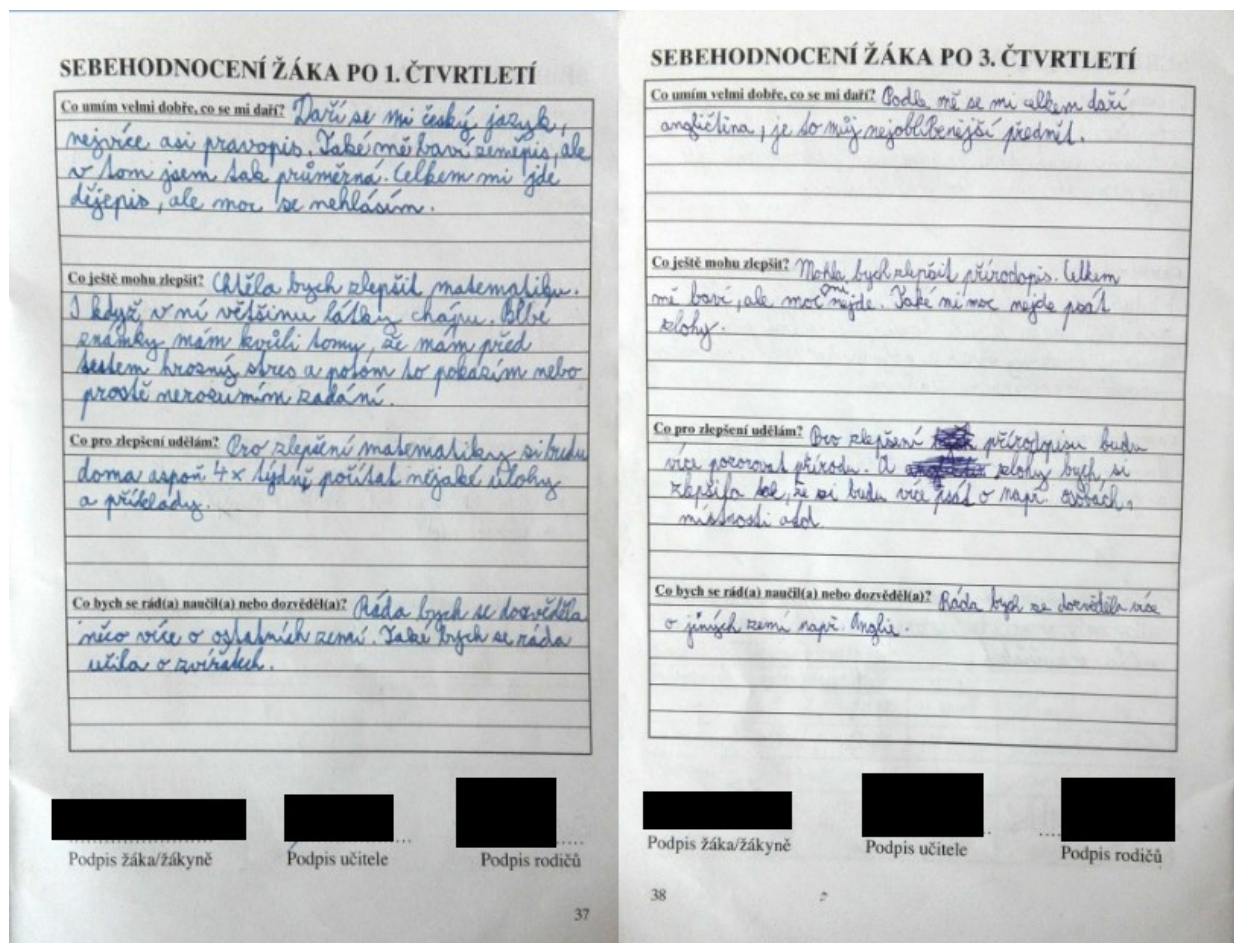 SEBEHODNOCENÍ ŽÁKA PO 1. ČTVRTLETÍ
Co umím velmi dobře, co se mi daří? Daří se mi český jazyk,
nejvíce asi pravopis. Také mě baví zeměpis, ale
v tom jsem tak průměrná. Celkem mi jde
dějepis, ale moc se nehlásím.
Co ještě mohu zlepšit? Chtěla bych zlepšit matematiku.
I když, v ní většinu látky chápu. Blbé
známky mám kvůli tomu, že mám před
testem hrozný stres a potom to pokazím nebo
prostě nerozumím zadání.
Co pro zlepšení udělám? Pro zlepšení matematiky si budu
doma aspoň 4x týdně počítat nějaké úlohy
a příklady.
Co bych se rád(a) naučil(a) nebo dozvěděl(a)? Ráda bych se dozvěděla
něco více o ostatních zemí. Také bych se ráda
učila o zvířatech.
Podpis žáka/žákyně Podpis učitele Podpis rodičů
37
SEBEHODNOCENÍ ŽÁKA PO 3. ČTVRTLETÍ
Co umím velmi dobře, co se mi daří? Podle mě se mi celkem daří
angličtina, je to můj nejoblíbenější předmět.
Co ještě mohu zlepšit? Mohla bych zlepšit přírodopis. Celkem
mě baví, ale moc mi nejde. Také mi moc nejde psát
slohy.
Co pro zlepšení udělám? Pro zlepšení přírodopisu budu
více pozorovat přírodu. A slohy bych si
zlepšila tak, že si budu více psát o např. osobách,
místnosti atd.
Co bych se rád(a) naučil(a) nebo dozvěděl(a)? Ráda bych se dozvěděla více
o jiných zemí např. Anglie.
Podpis žáka/žákyně Podpis učitele Podpis rodičů
38